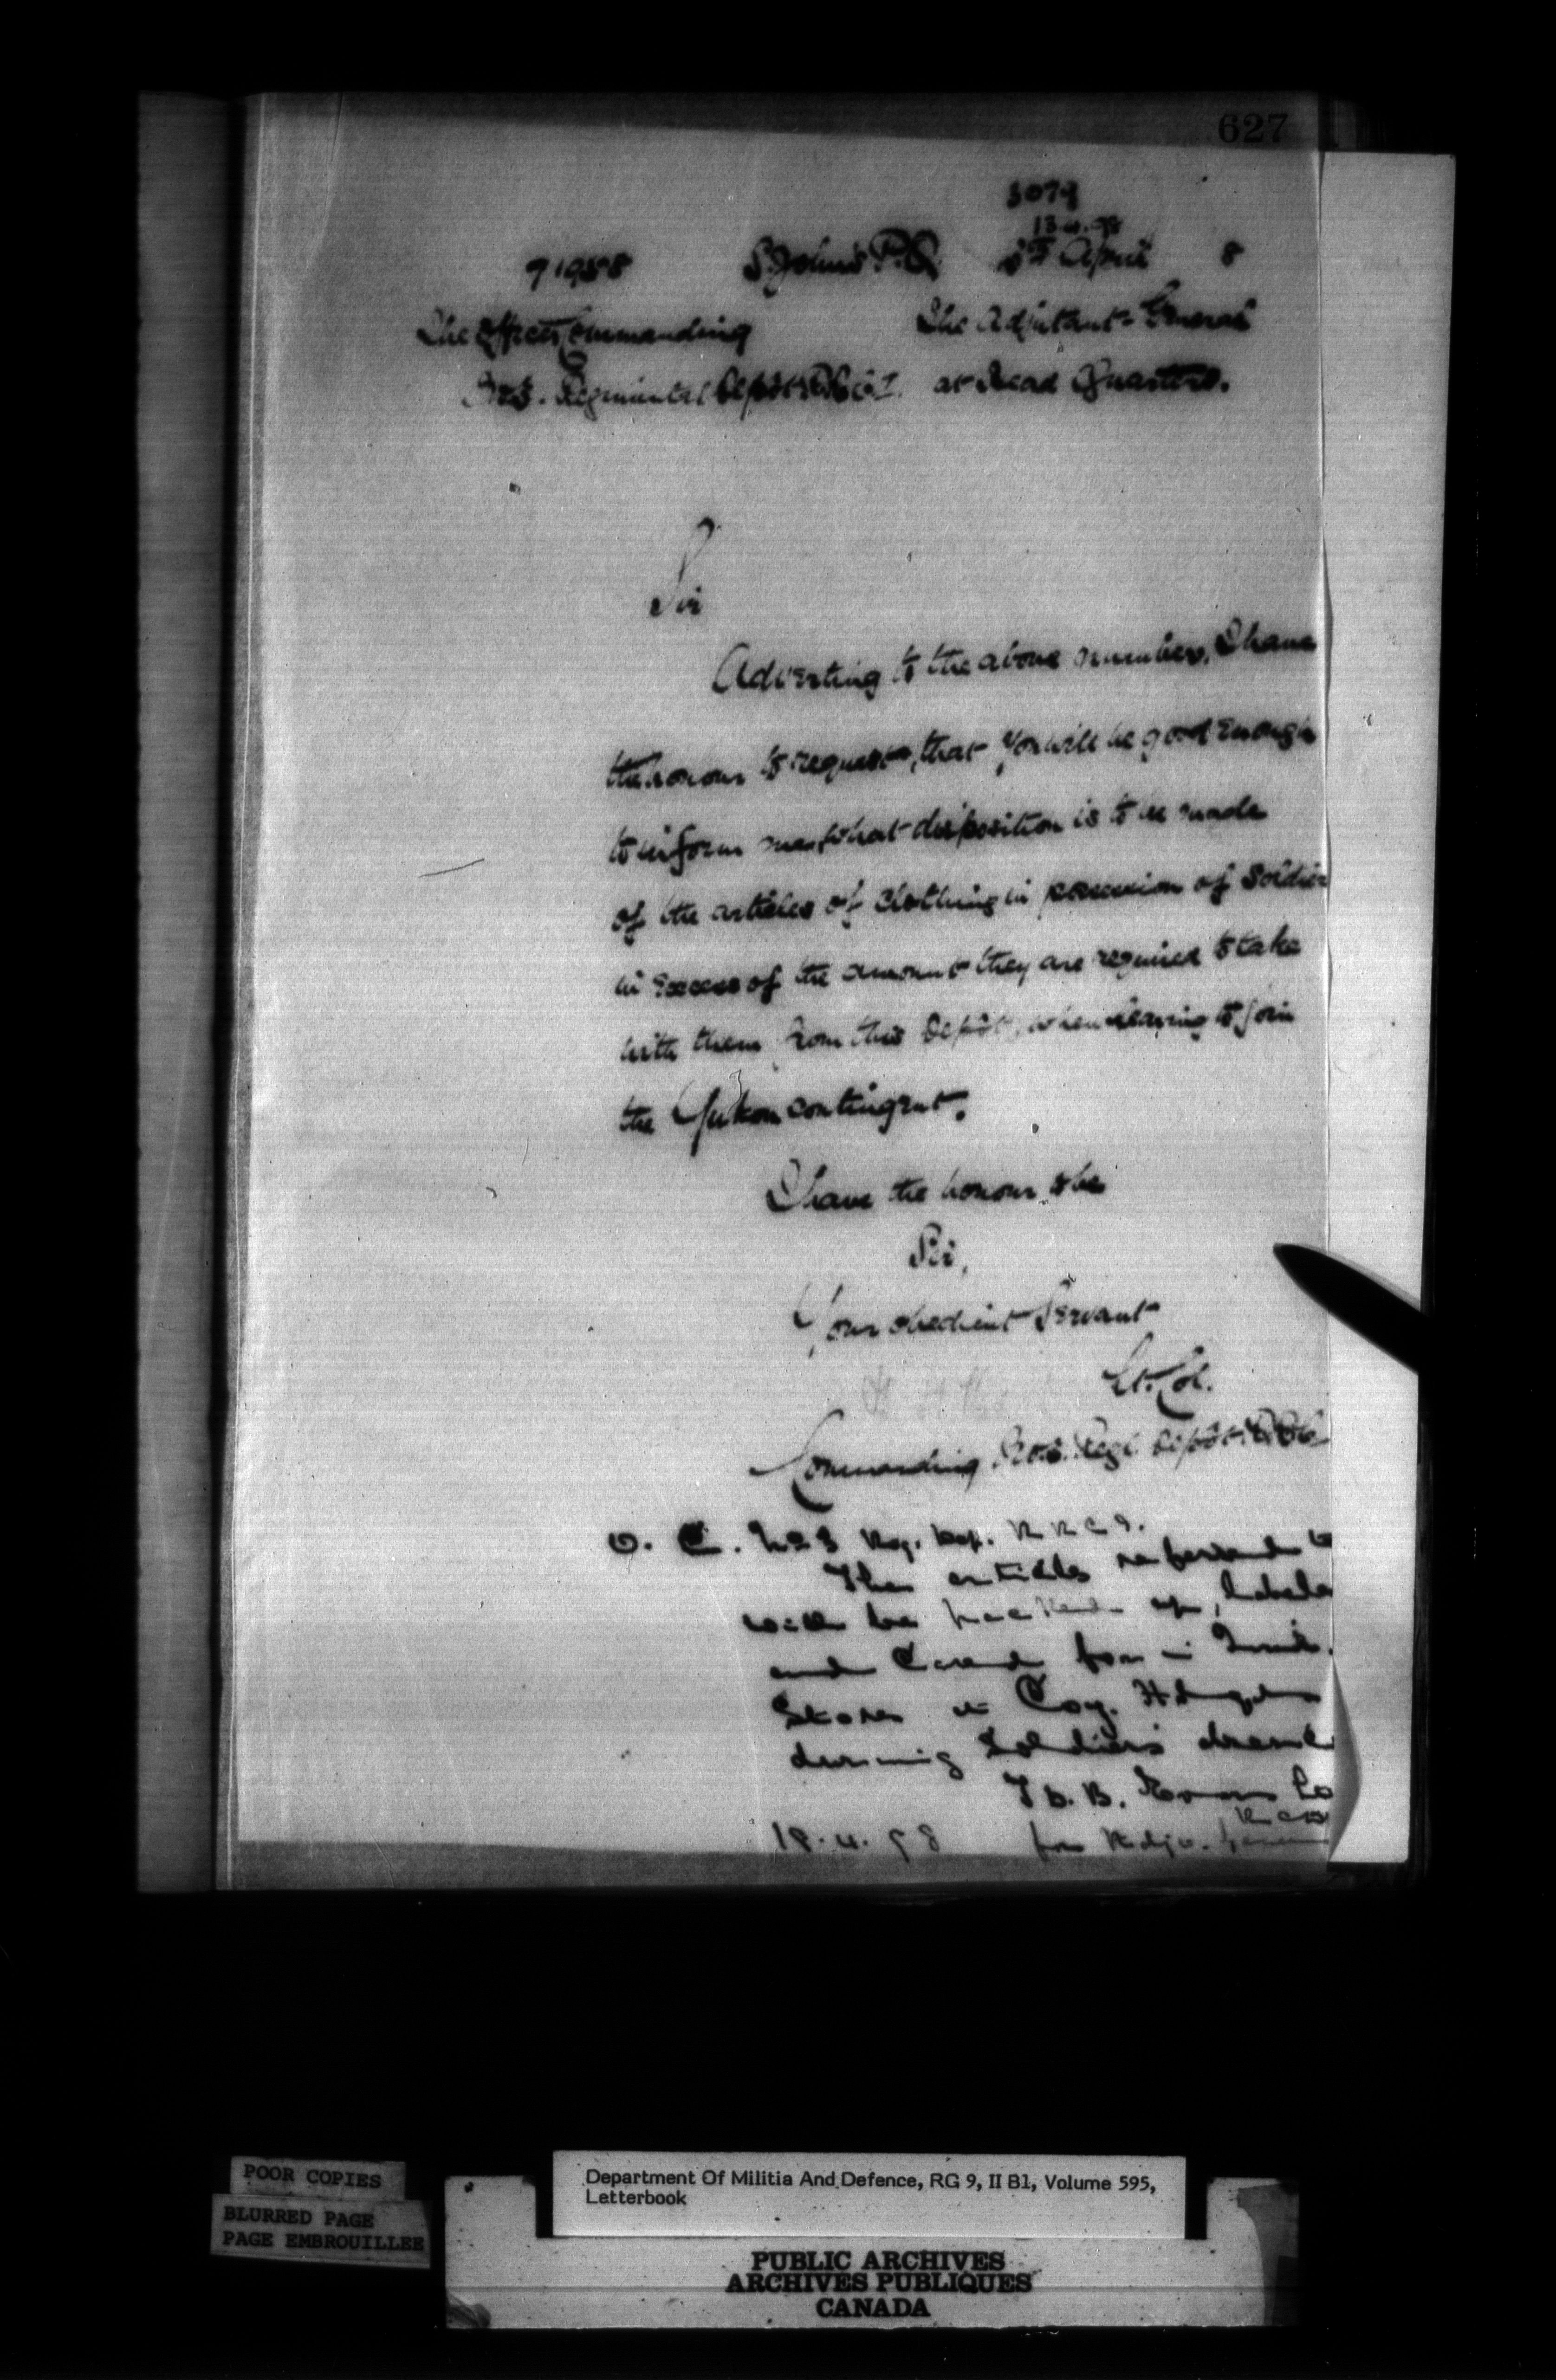 627
3079
13.4.98
71958 St. Johns P.Q. April 8
The Officer Commanding The Adjutant-General
No 3. Regimental Depôt at Head Quarters.
Sir
Adverting to the above number, I have
the honour to request, that you will be good enough
to inform me, what disposition is to be made
of the articles of clothing in possession of Soldier
in excess of the amount they are required to take
with them from this Depôt, when leaving to join
the Yukon contingent.
I have the honour to be
Sir,
Your obedient Servant
Lt. Col.
Commanding No 3. Regl. Depôt
O. C. No 3 Reg. Dep. R R C I.
The articles referred to
will be packed up, labele
and Cared for in
Stores at Coy. Hdqrs
during Soldiers'
T. D. B. Evans
18.4.98 for Adju.
POOR COPIES
BLURRED PAGE
PAGE EMBROUILLEE
Department Of Militia And Defence, RG 9, II B1, Volume 595,
Letterbook
PUBLIC ARCHIVES
ARCHIVES PUBLIQUES
CANADA